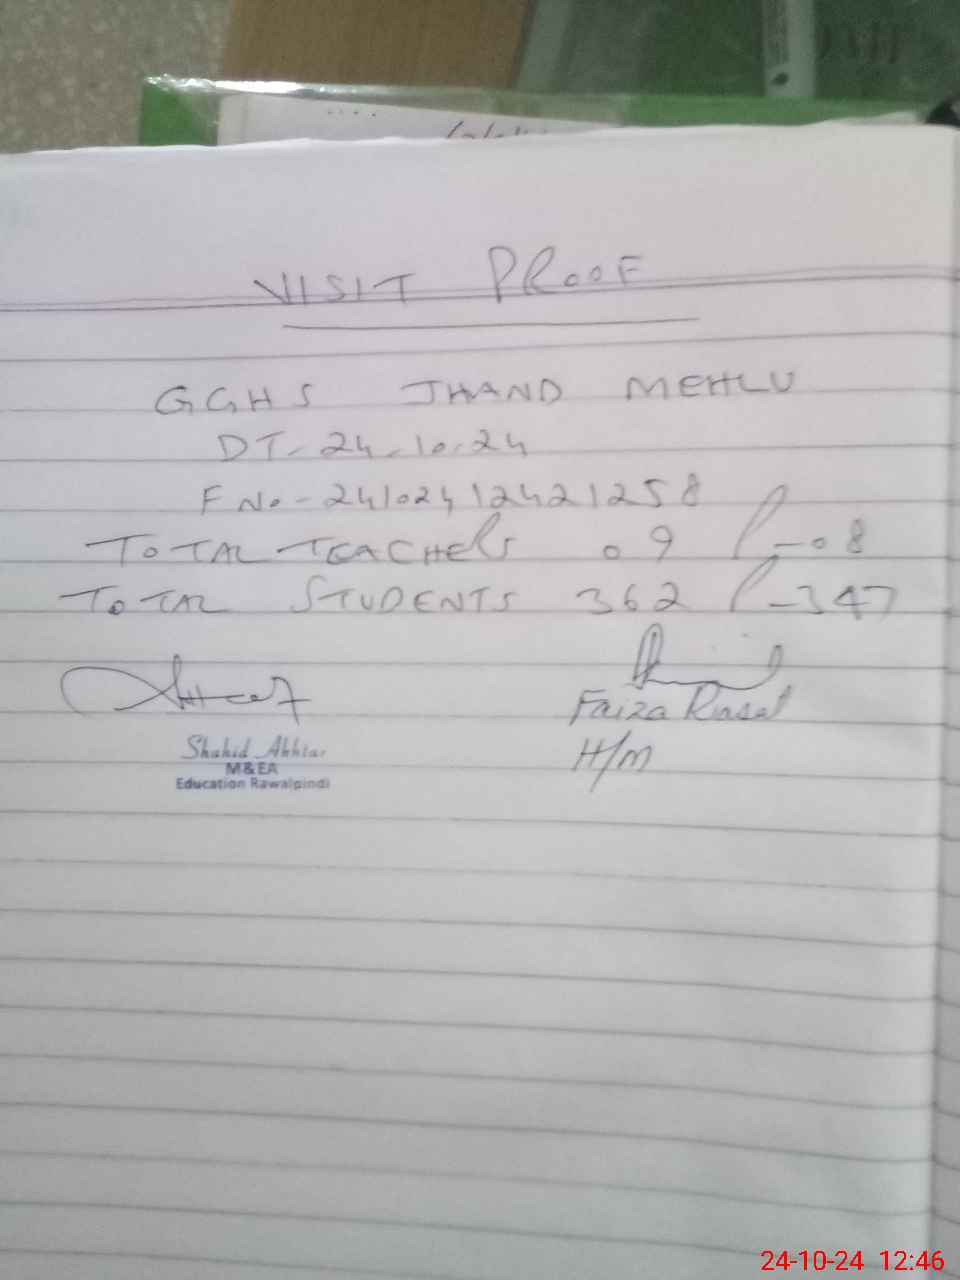 VISIT PROOF
GGHS JHAND MEHLU
DT-24-10-24
F No-24102412421258
TOTAL TEACHERS 09 P-08
TOTAL STUDENTS 362 P-347
Faiza
H/M
Shahid Akhtar
M&EA
Education Rawalpindi
24-10-24 12:46